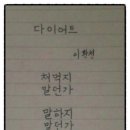 다이어트
이환천
처먹지
말던가
말하지
말던가